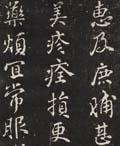 惠及鹿脯甚
美疼痊損更
藥煩宜常服